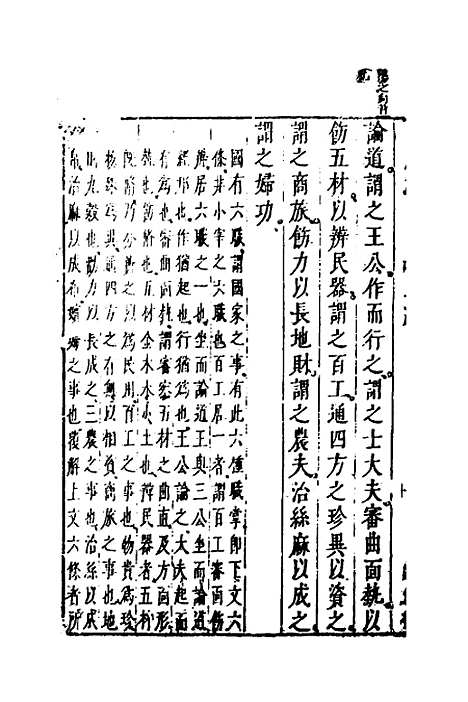 論道謂之王公作而行之謂之士大夫審曲面埶以
飭五材以辨民器謂之百工通四方之珍異以資之
謂之商旅飭力以長地財謂之農夫治絲麻以成之
謂之婦功
國有六職謂國家之事有此六種職掌即下文六
條非小宰之六職也百工居一者謂百工審面飭
辨居六職之一也坐而論道王與三公坐而論道
經邦也作猶起也行猶為也王公論之大夫起而
有為也審曲面埶謂審察五材之曲直及方面形
埶也飭治也五材金木水火土也辨民器者五材
乃分辨之以為民用百工之事也物貴為珍
為異通四方之有無以相資商旅之事也地
九穀也勤力以長成之三農之事也治絲以成
治麻以成布婦之事也覆解上文六條者所